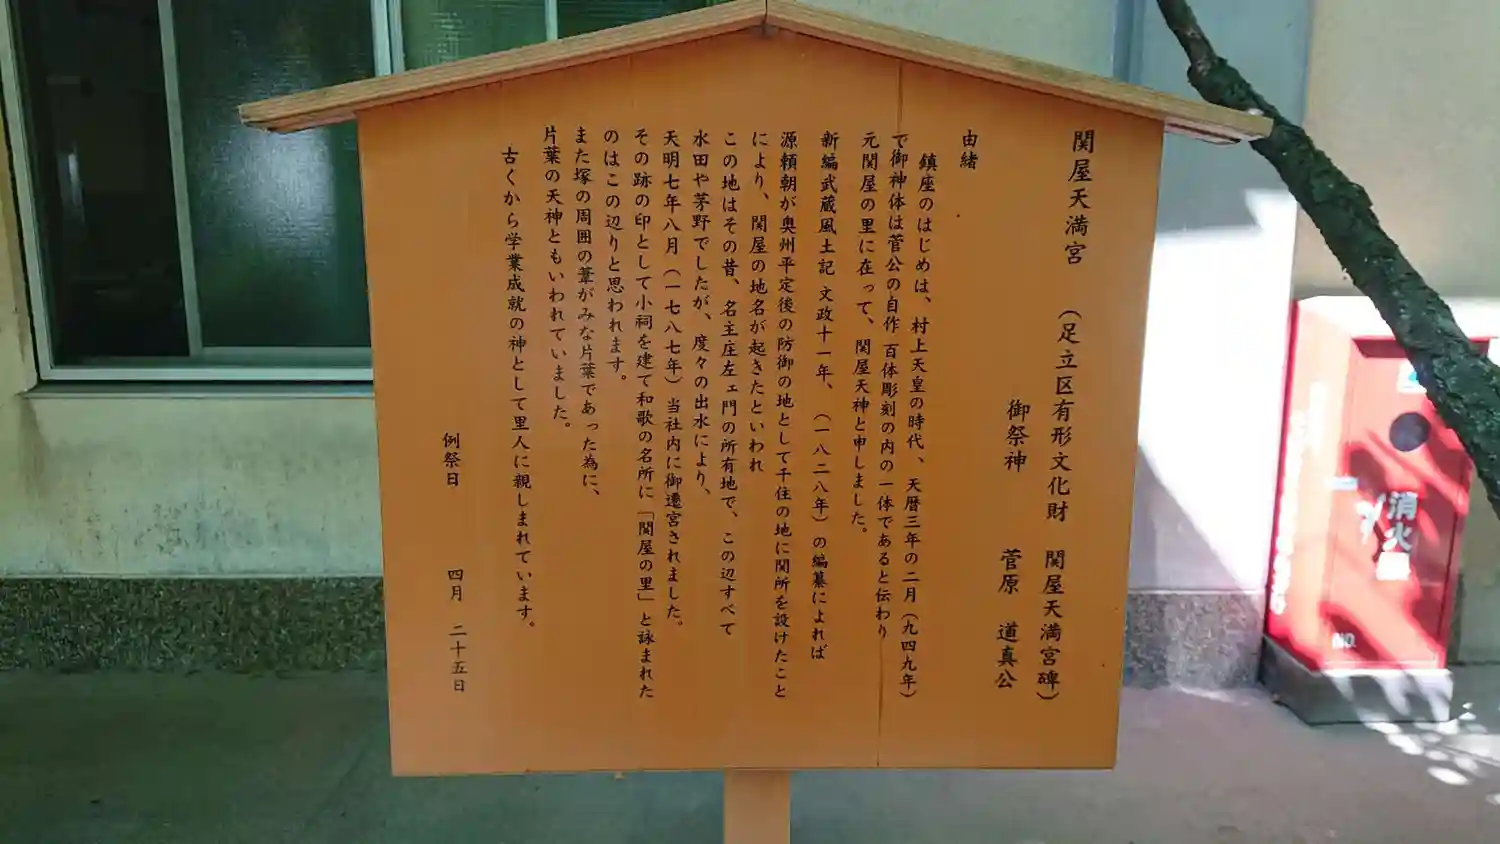 関屋天満宮 （足立区有形文化財 関屋天満宮碑）
御祭神 菅原 道真公
由緒
鎮座のはじめは、村上天皇の時代、天暦三年の二月（九四九年）
で御神体は菅公の自作 百体彫刻の内の一体であると伝わり
元関屋の里に在って、関屋天神と申しました。
新編武蔵風土記 文政十一年、（一八二八年）の編纂によれば
源頼朝が奥州平定後の防御の地として千住の地に関所を設けたこと
により、関屋の地名が起きたといわれ
この地はその昔、名主庄左ェ門の所有地で、この辺すべて
水田や茅野でしたが、度々の出水により、
天明七年八月（一七八七年）当社内に御遷宮されました。
その跡の印として小祠を建て和歌の名所に「関屋の里」と詠まれた
のはこの辺りと思われます。
また塚の周囲の葦がみな片葉であった為に、
片葉の天神ともいわれていました。
古くから学業成就の神として里人に親しまれています。
例祭日 四月 二十五日
消火器
NO.